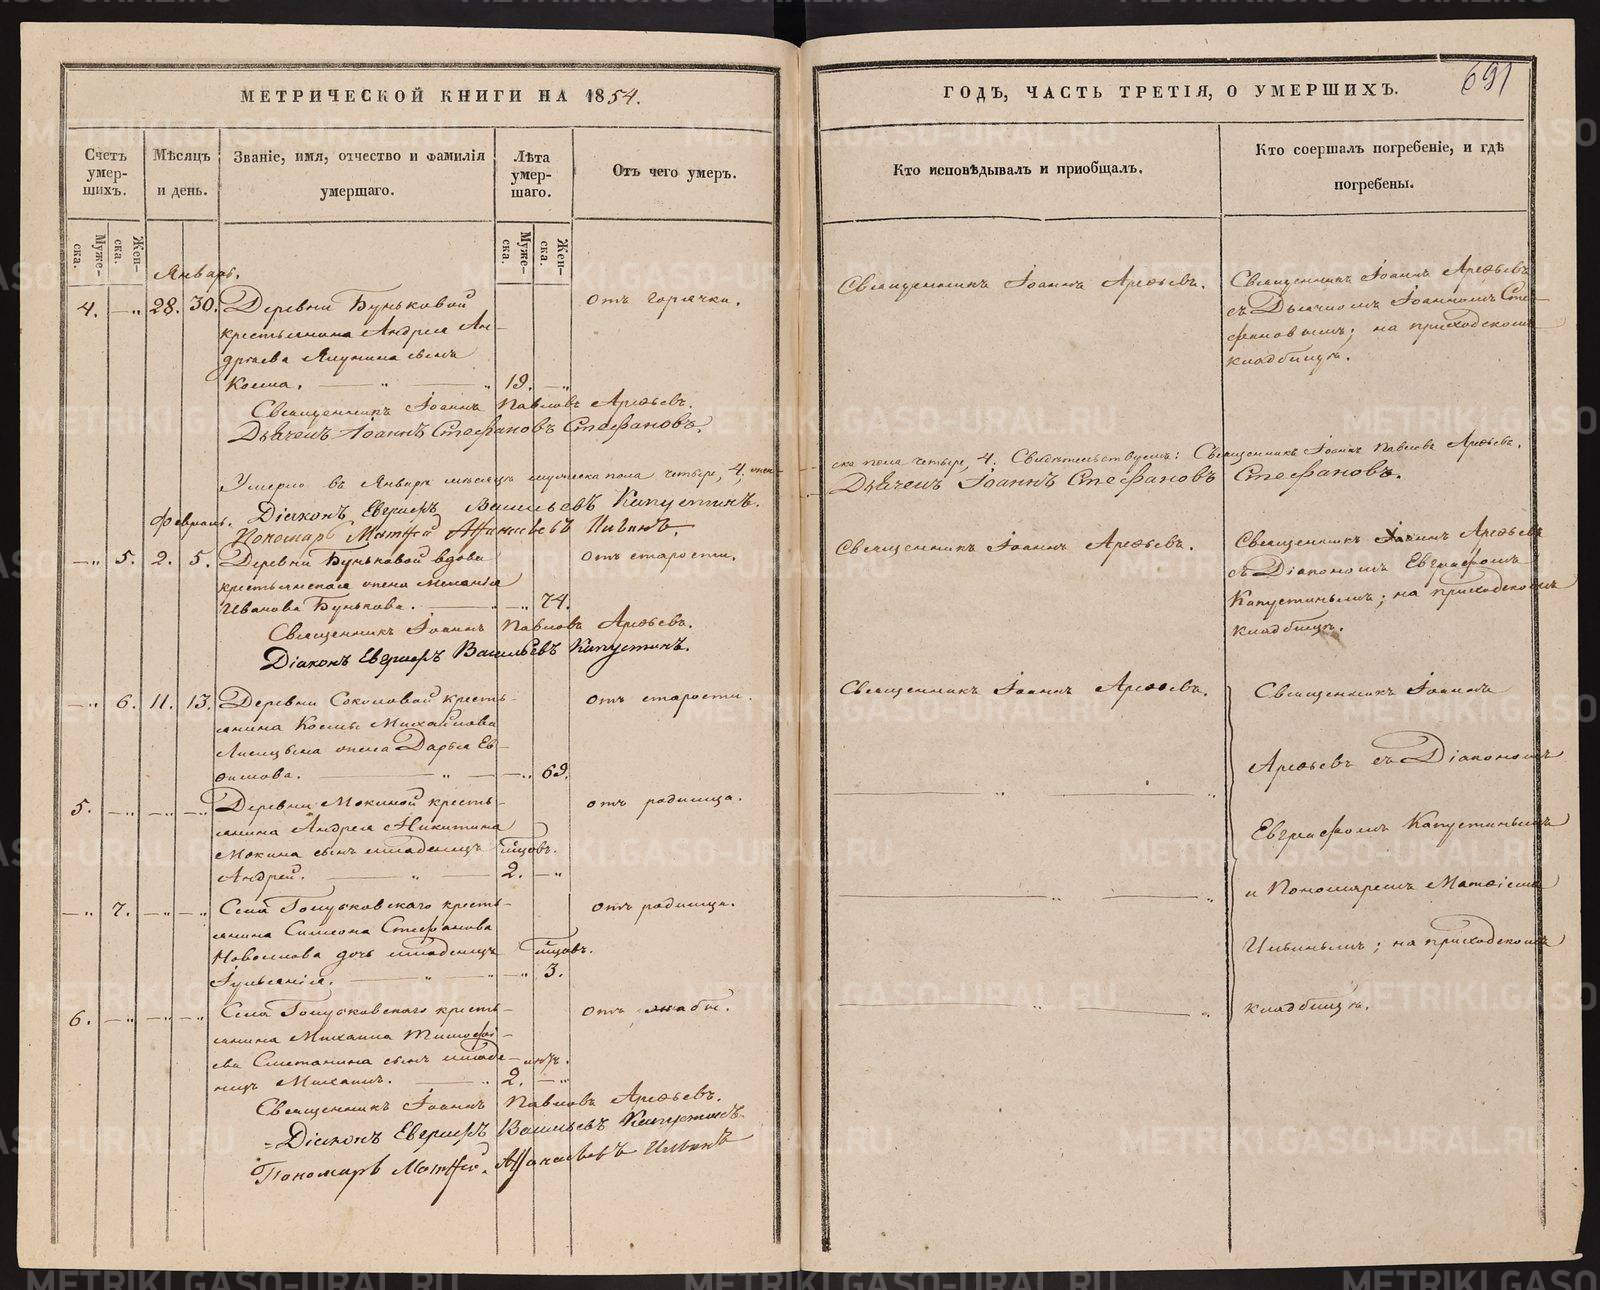 МЕТРИЧЕСКОЙ КНИГИ НА 1854.
Счетъ умер-шихъ.
Мѣсяцъ и день.
Званіе, имя, отчество и фамилія умершаго.
Лѣта умер-шаго.
Отъ чего умеръ.
Муже-ска.
Жен-ска.
Муже-ска.
Жен-ска.
Январь.
4. —„ 28. 30. Деревни Буньковой
крестьянина Андрея Ан-
дреева Якунина сынъ
Косма. — „ — „ 19. —„
отъ горячки.
Священникъ Іоаннъ Павловъ Арефьевъ.
Дьячекъ Іоаннъ Стефановъ Стефановъ.
Умерло въ Январѣ мѣсяцѣ мужеска пола четыре, 4, жен-
Діаконъ Евграфъ Васильевъ Капустинъ.
Пономарь Матѳей Аѳанасьевъ Ильинъ.
Февраль.
—„ 5. 2. 5. Деревни Буньковой вдова
крестьянская жена Меланія
Иванова Бунькова. — „ —„ 74.
отъ старости.
Священникъ Іоаннъ Павловъ Арефьевъ.
Діаконъ Евграфъ Васильевъ Капустинъ.
—„ 6. 11. 13. Деревни Соколовой кресть-
янина Космы Михайлова
Лисицына жена Дарья Ев-
фимова. — „ — —„ 69.
отъ старости.
5. —„ —„ —„ Деревни Мокиной кресть-
янина Андрея Никитина
Мокина сынъ младенецъ
Андрей. — „ — 2. —„
отъ родимца.
—„ 7. —„ —„ Села Голубковскаго кресть-
янина Симеона Стефанова
Новоселова дочь младенецъ
Іуліанія. — „ — —„ 3.
отъ родимца.
6. —„ —„ —„ Села Голубковскаго кресть-
янина Михаила Тимофѣ-
ева Сметанина сынъ младе-
нецъ Михаилъ. — „ 2. —„
отъ жабы.
Священникъ Іоаннъ Павловъ Арефьевъ.
Діаконъ Евграфъ Васильевъ Капустинъ
Пономарь Матѳей Аѳанасьевъ Ильинъ
ГОДЪ, ЧАСТЬ ТРЕТІЯ, О УМЕРШИХЪ.
691
Кто исповѣдывалъ и пріобщалъ.
Кто соершалъ погребеніе, и гдѣ погребены.
Священникъ Іоаннъ Арефьевъ.
Священникъ Іоаннъ Арефьевъ
съ Дьячкомъ Іоанномъ Сте-
фановымъ; на приходскомъ
кладбищѣ.
ска пола четыре, 4. Свидѣтельствуемъ: Священникъ Іоаннъ Павловъ Арефьевъ.
Дьячекъ Іоаннъ Стефановъ Стефановъ.
Священникъ Іоаннъ Арефьевъ.
Священникъ Іоаннъ Арефьевъ
съ Діакономъ Евграфомъ
Капустинымъ; на приходскомъ
кладбищѣ.
Священникъ Іоаннъ Арефьевъ.
Священникъ Іоаннъ
Арефьевъ съ Діакономъ
Евграфомъ Капустинымъ
и Пономаремъ Матѳіемъ
Ильинымъ; на приходскомъ
кладбищѣ.
METRIKI.GASO-URAL.RU